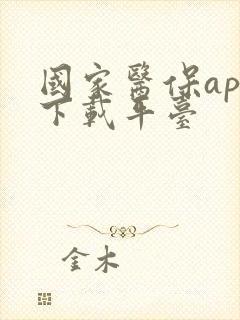 國家醫保ap
下載平臺
金木